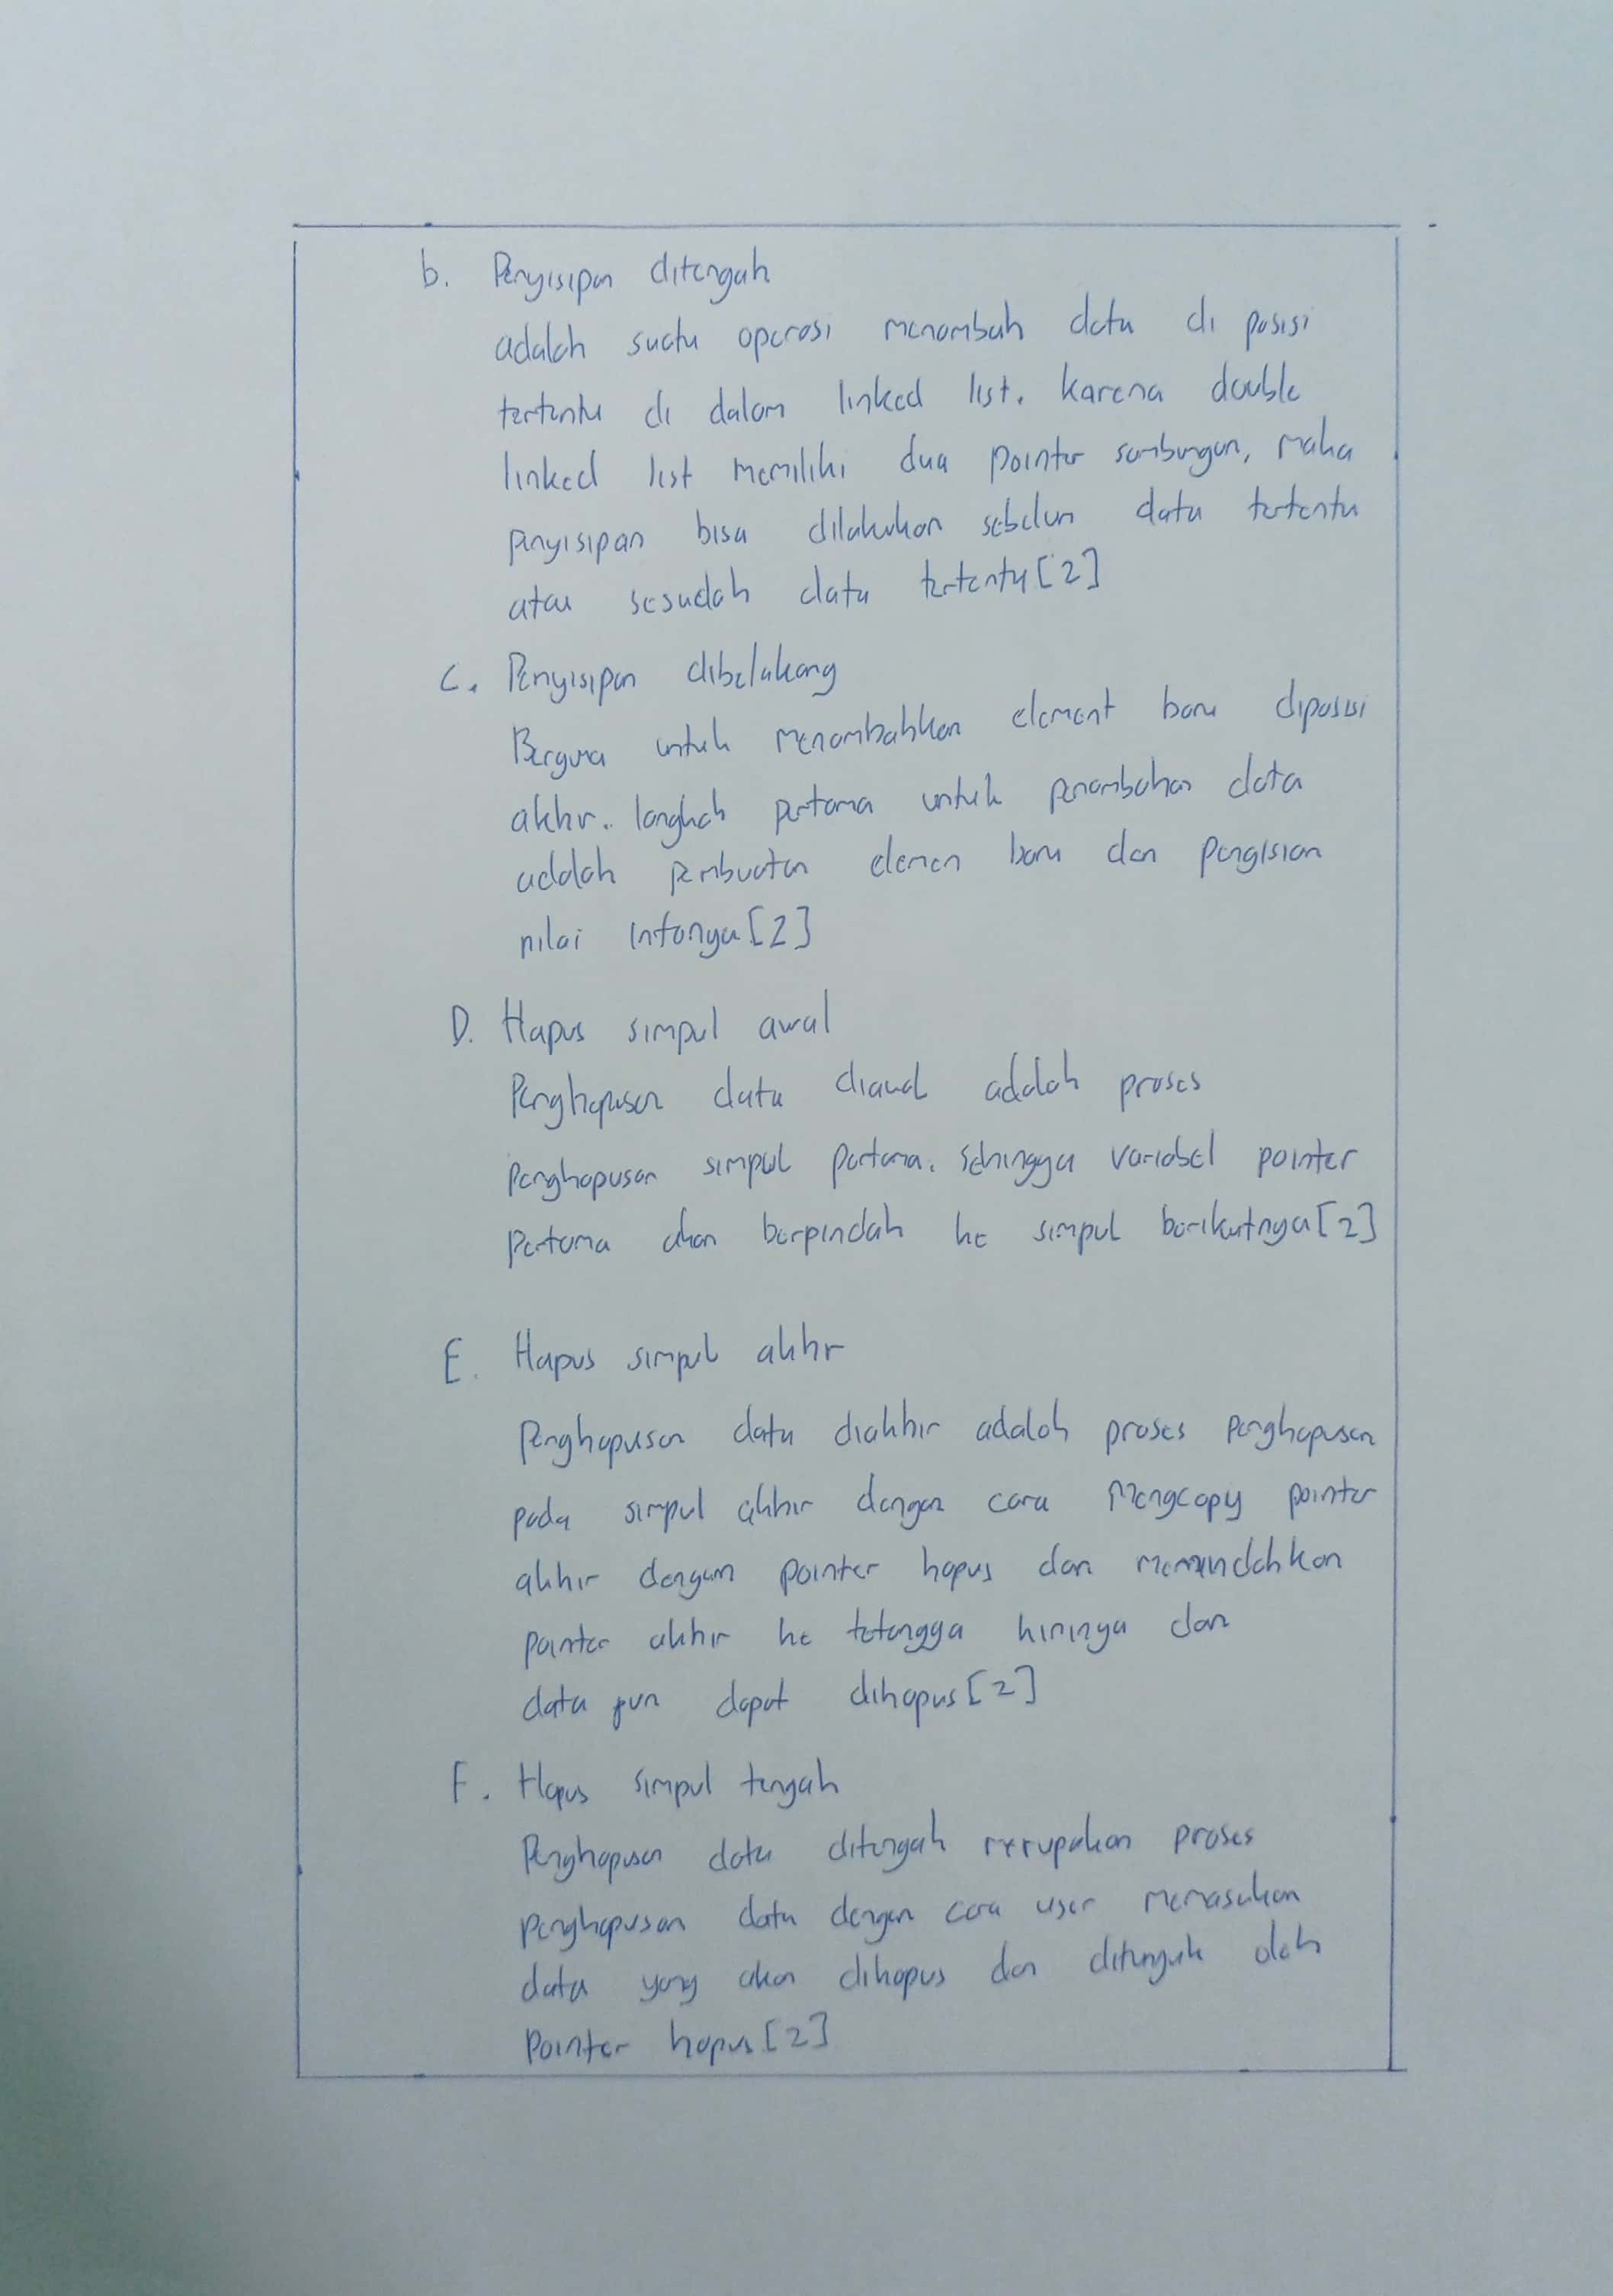 b. Penyisipan ditengah
adalah suatu operasi menambah data di posisi
tertentu di dalam linked list. karena double
linked list memiliki dua pointer sambungan, maka
penyisipan bisa dilakukan sebelum data tertentu
atau sesudah data tertentu [2]
C. Penyisipan dibelakang
Berguna untuk menambahkan element baru diposisi
akhir. langkah pertama untuk penambahan data
adalah pembuatan elemen baru dan pengisian
nilai infonya [2]
D. Hapus simpul awal
Penghapusan data diawal adalah proses
penghapusan simpul pertama. sehingga variabel pointer
pertama akan berpindah ke simpul berikutnya [2]
E. Hapus simpul akhir
Penghapusan data diakhir adalah proses penghapusan
pada simpul akhir dengan cara mengcopy pointer
akhir dengan pointer hapus dan memindahkan
pointer akhir ke tetangga kirinya dan
data pun dapat dihapus [2]
F. Hapus simpul tengah
Penghapusan data ditengah merupakan proses
penghapusan data dengan cara user memasukan
data yang akan dihapus dan ditunjuk oleh
pointer hapus [2]